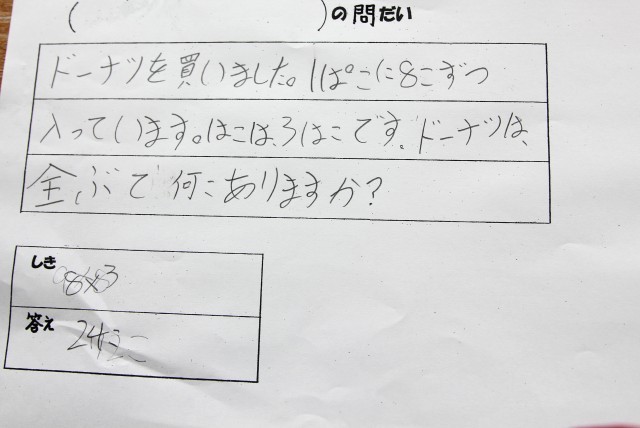 (　　　　)の問だい
ドーナツを買いました。1ぱこに8こずつ
入っています。はこは、3はこです。ドーナツは、
全ぶで何こありますか?
しき
8×3
答え
24こ